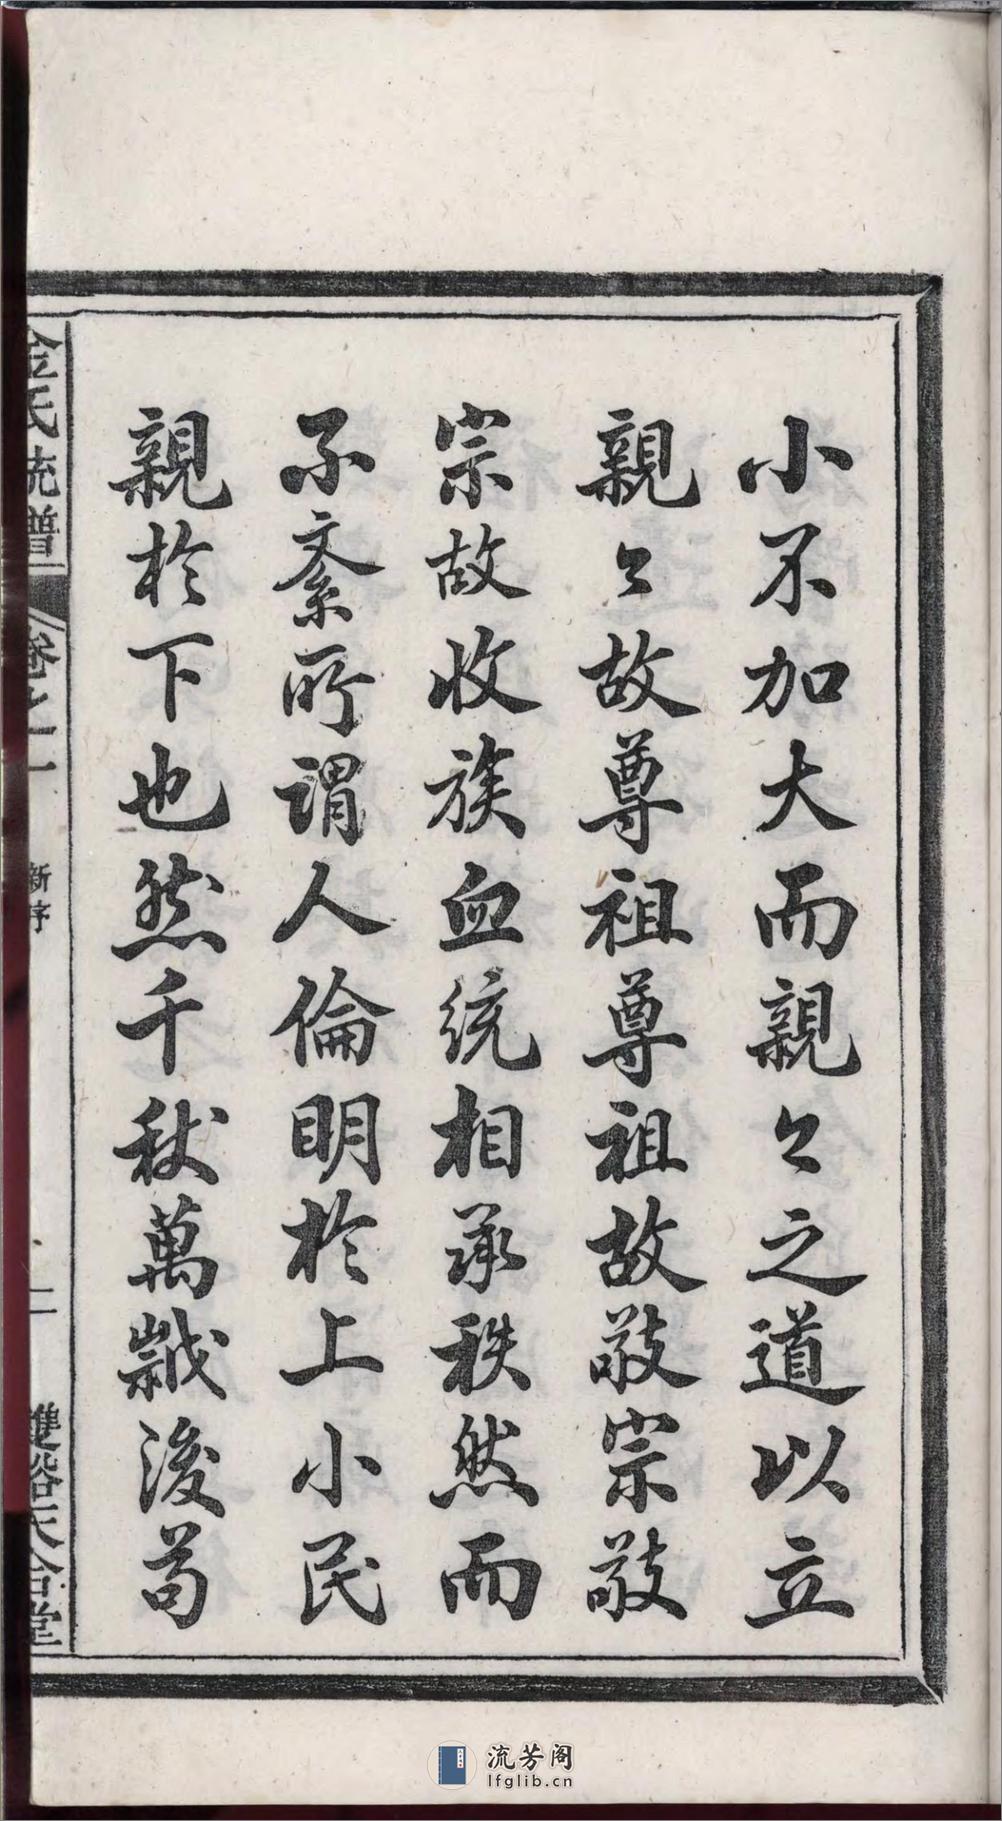 小不加大而親〻之道以立
親〻故尊祖尊祖故敬宗敬
宗故收族血統相承秩然而
不紊所謂人倫明於上小民
親於下也然千秋萬歲後苟
金氏統譜
卷之一
新序
二
雙谿天合堂
流芳阁
lfglib.cn